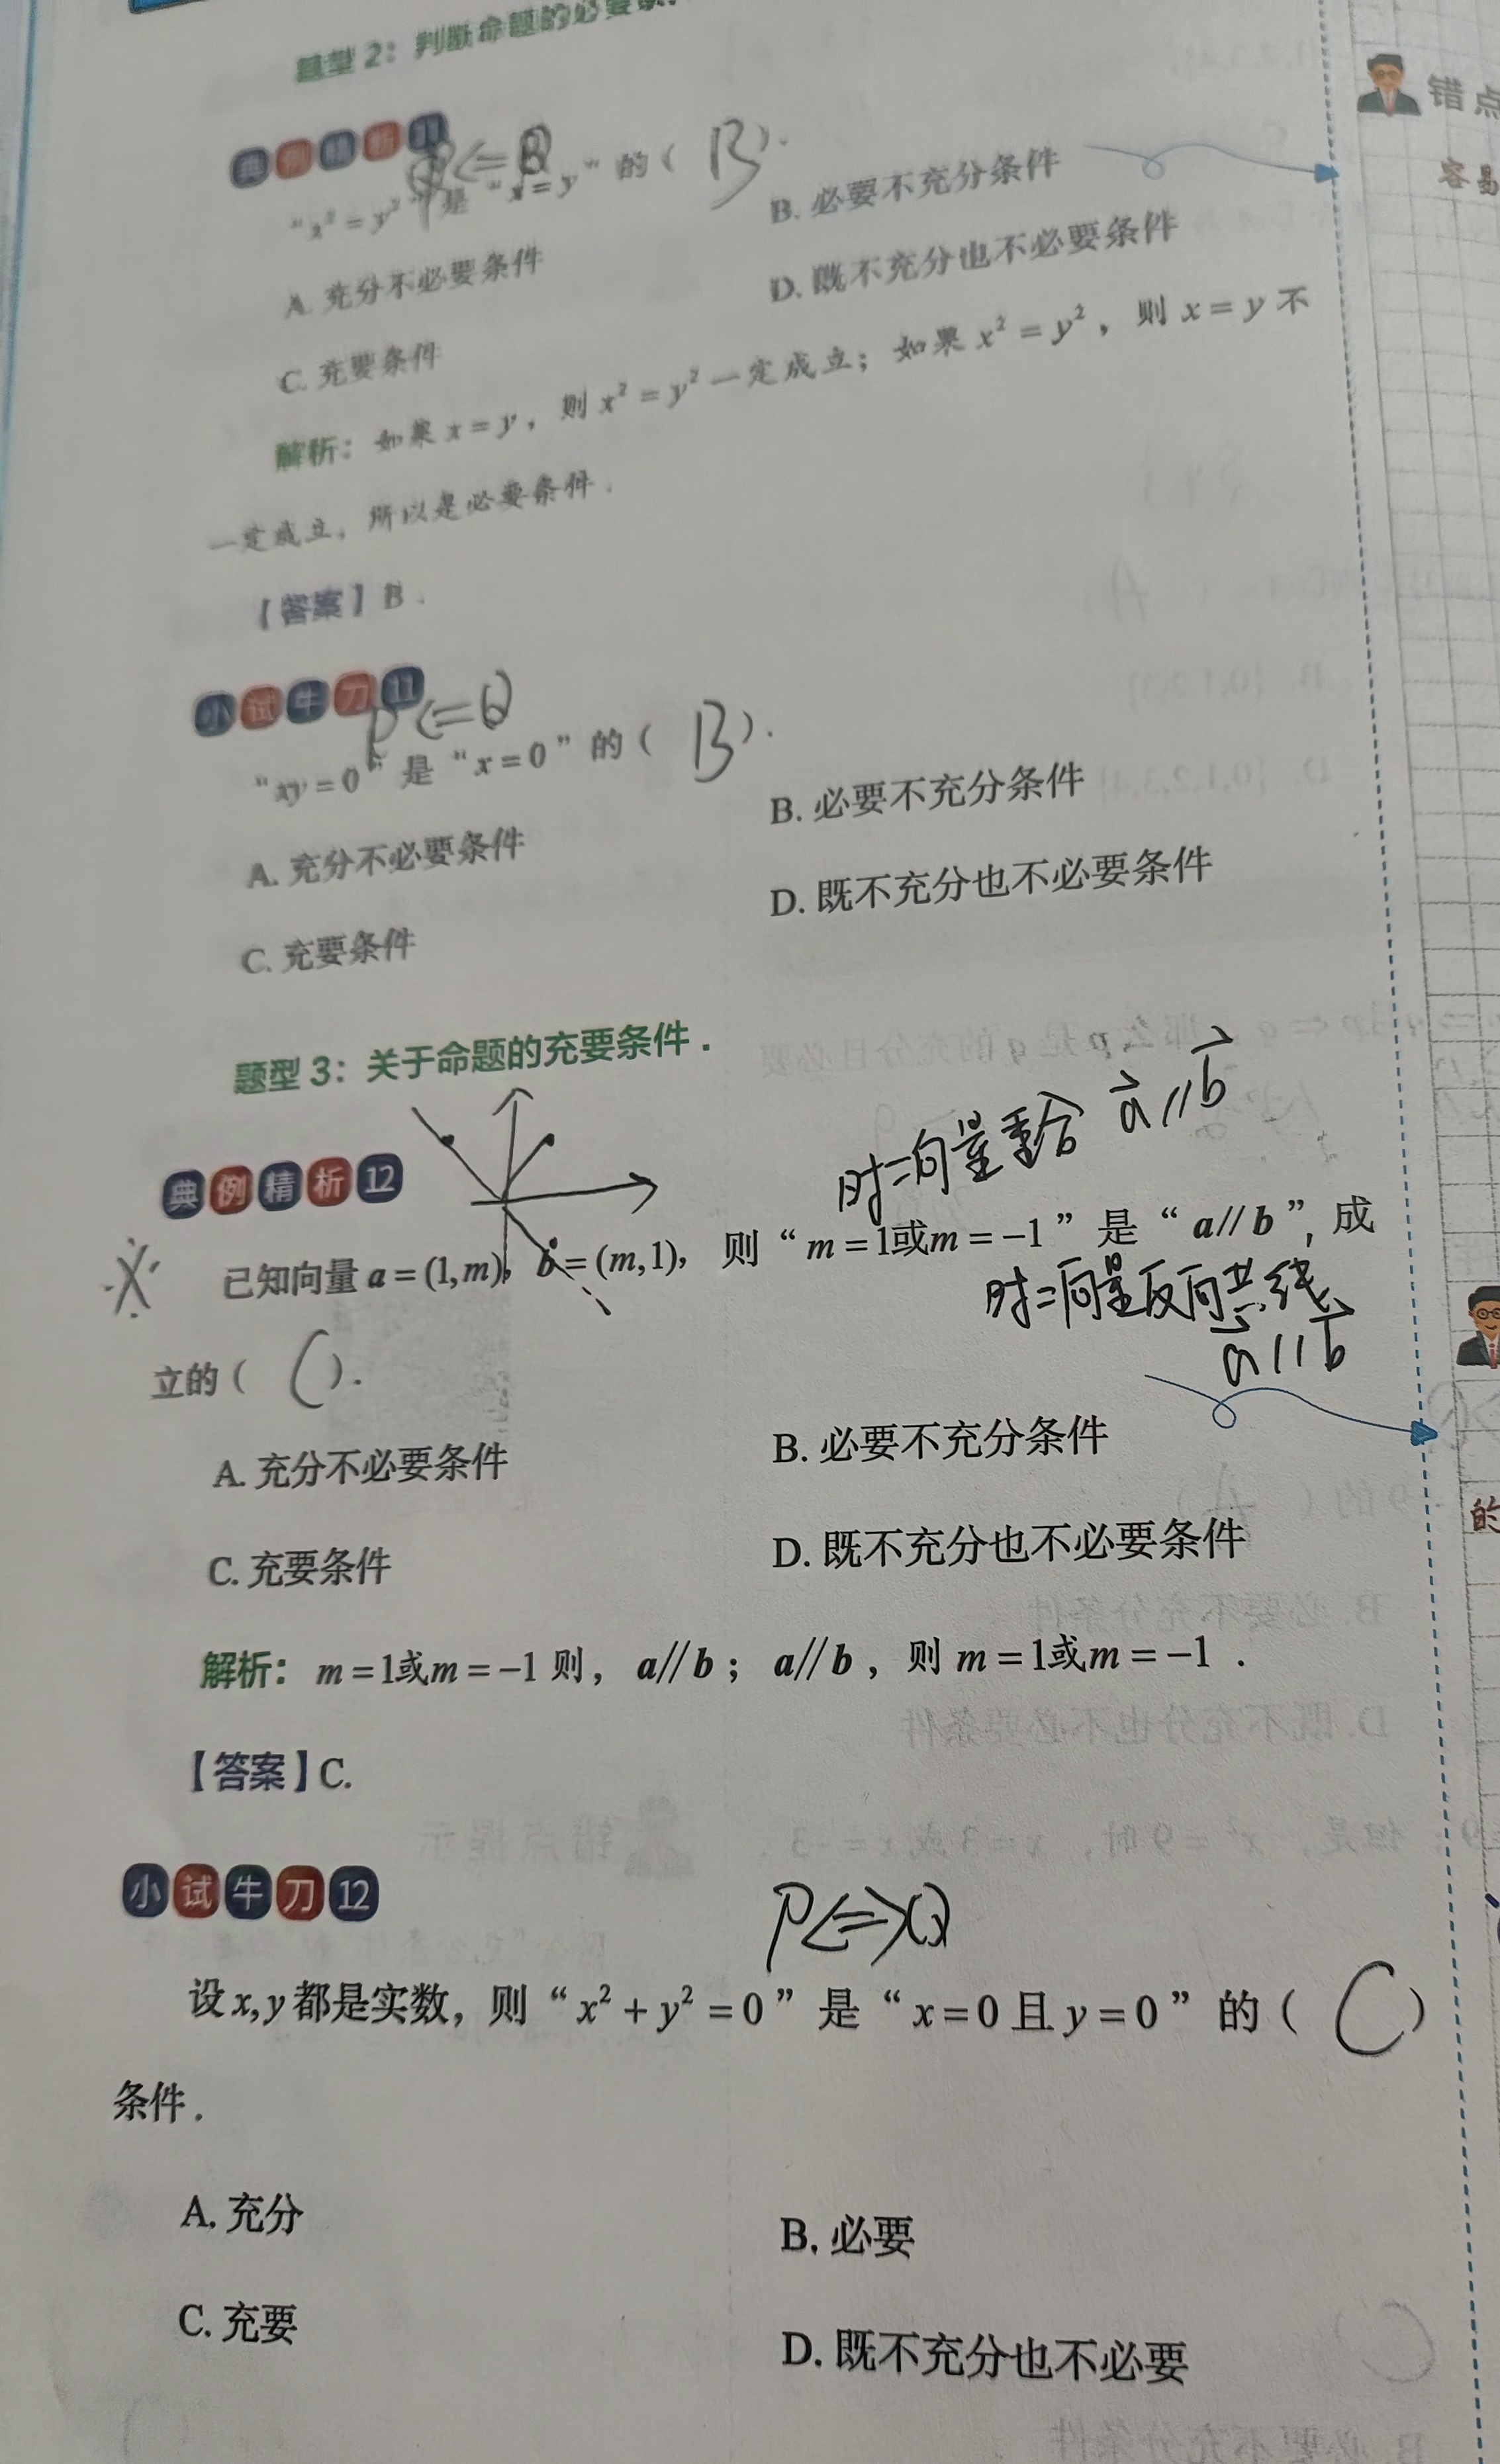 题型 2：判断命题的必要条
错点
典例精析11
P<=Q
容易
“x² = y²” 是 “x = y” 的（ B ）.
A. 充分不必要条件
B. 必要不充分条件
C. 充要条件
D. 既不充分也不必要条件
解析：如果 x = y，则 x² = y² 一定成立；如果 x² = y²，则 x = y 不
一定成立，所以是必要条件.
【答案】B .
小试牛刀11
P<=Q
“xy = 0” 是 “x = 0” 的（ B ）.
A. 充分不必要条件
B. 必要不充分条件
C. 充要条件
D. 既不充分也不必要条件
题型 3：关于命题的充要条件 .
典例精析12
时二向量重合 a // b
已知向量 a = (1, m), b = (m, 1)，则 “m = 1或m = −1” 是 “a // b”，成
时二向量反向共线
a // b
立的（ C ）.
A. 充分不必要条件
B. 必要不充分条件
C. 充要条件
D. 既不充分也不必要条件
的
解析：m = 1或m = −1 则，a // b；a // b，则 m = 1或m = −1 .
【答案】C.
小试牛刀12
P<=>Q
设 x, y 都是实数，则 “x² + y² = 0” 是 “x = 0 且 y = 0” 的（ C ）
条件 .
A. 充分
B. 必要
C. 充要
D. 既不充分也不必要